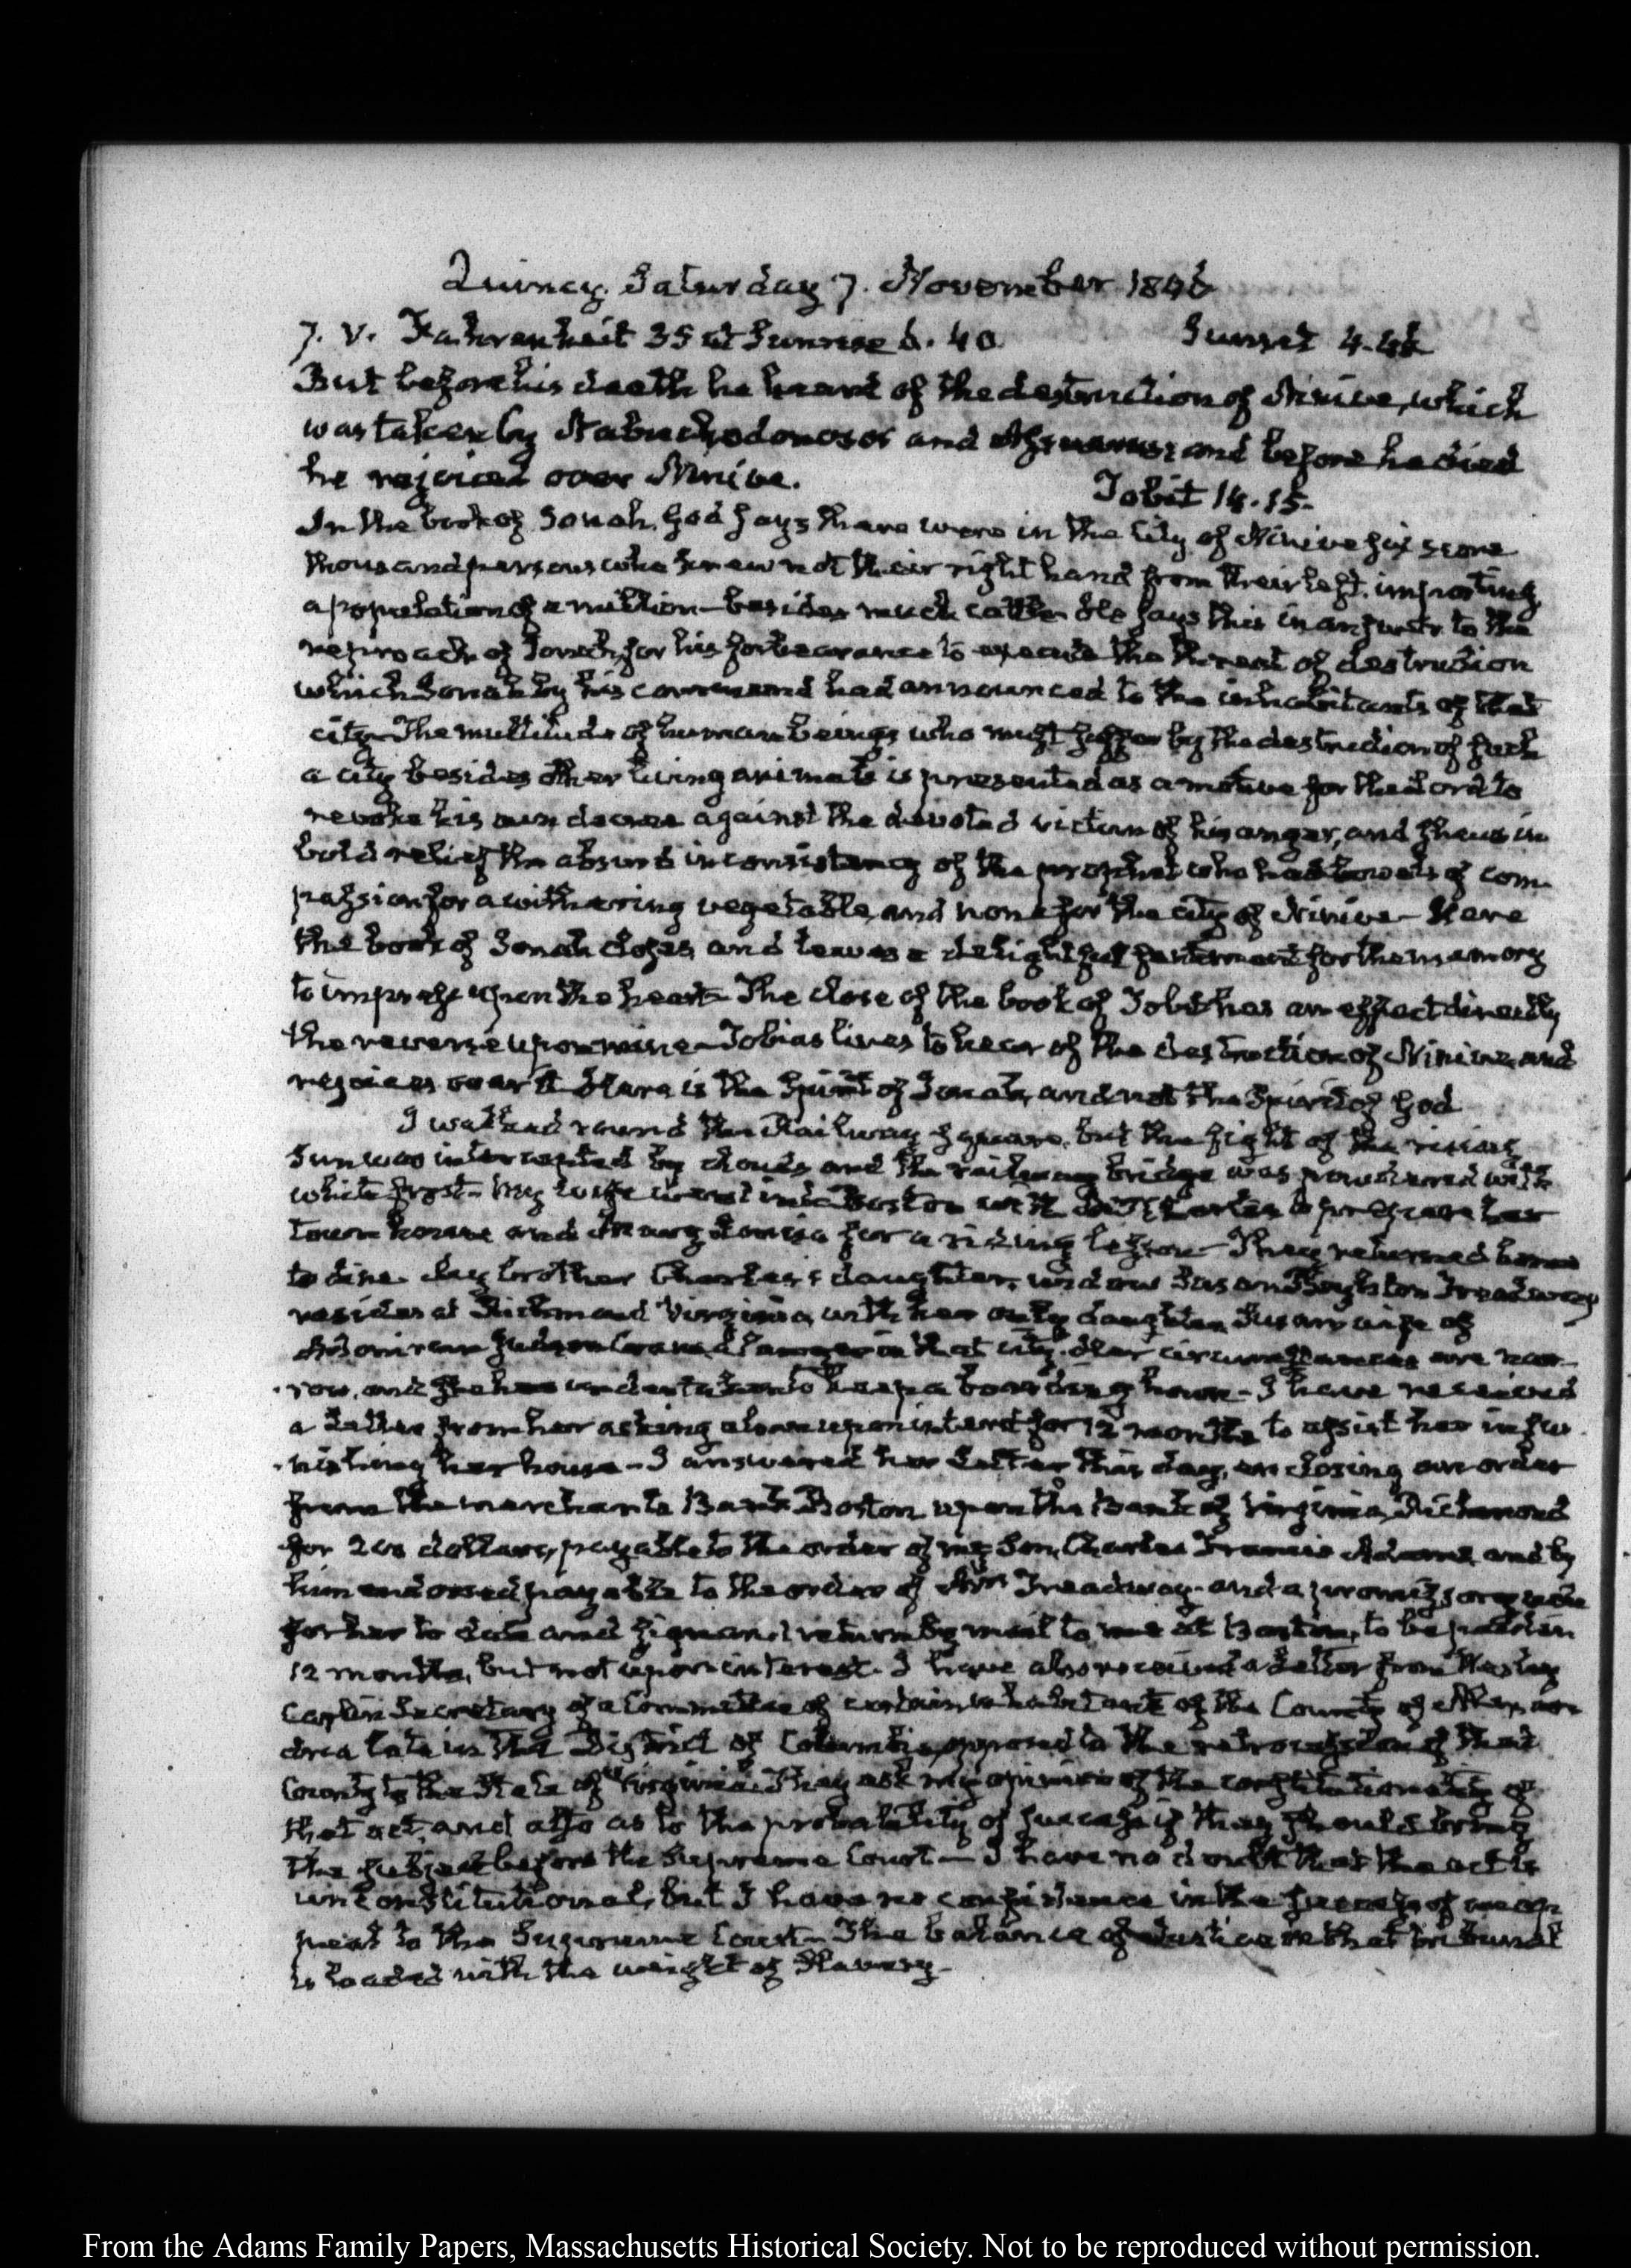 Quincy Saturday 7. November 1846
7. V. Fahrenheit 35 at Sunrise 6. 40 Sunset 4.46
But before his death he heard of the destruction of Ninive, which
was taken by Nabuchodonosor and Assuerus; and before he died
he rejoiced over Ninive. Tobit 14.15.
In the book of Jonah, God says there were in the City of Ninive six score
thousand persons who knew not their right hand from their left, importing
a population of a million—besides much cattle. He says this in answer to the
reproach of Jonah, for his forbearance to execute the threat of destruction
which Jonah by his command had announced to the inhabitants of that
city. The multitude of human beings who must suffer by the destruction of such
a city besides other living animals is presented as a motive for the Lord to
revoke his own decree against the devoted victim of his anger, and shews in
bold relief the absurd inconsistency of the prophet who had bowels of com-
passion for a withering vegetable, and none for the city of Ninive—Here
the book of Jonah closes, and leaves a delightful sentiment for the memory
to impress upon the heart—The close of the book of Tobit has an effect directly
the reverse upon mine—Tobias lives to hear of the destruction of Ninive, and
rejoices over it. Here is the Spirit of Jonah, and not the Spirit of God
I walked round the Railway square, but the sight of the rising
Sun was intercepted by clouds and the railway bridge was powdered with
white frost. My wife went into Boston with to prepare her
town house and for a riding lesson—They returned home
to dine. My brother Charles's daughter, widow Susan Boylston Treadway
resides at Richmond Virginia, with her only daughter Susan, wife of
in that city. Her circumstances are nar-
row, and she has undertaken to keep a boarding house—I have received
a Letter from her asking a loan upon interest for 12 months to assist her in fur-
nishing her house—I answered her Letter this day, enclosing an order
from the merchants Bank Boston upon the Bank of Virginia, Richmond
for 200 dollars, payable to the order of my Son, Charles Francis Adams, and by
him endorsed payable to the order of Mrs Treadway—and a promissory note
for her to date and sign and return by mail to me at Boston, to be paid in
12 months, but not upon interest. I have also received a Letter from
Carlin Secretary of a Committee of certain inhabitants of the County of Alexan-
dria late in the District of Columbia, opposed to the retrocession of that
County to the State of Virginia. They ask my opinion of the constitutionality of
that act, and also as to the probability of success if they should bring
the subject before the Supreme Court—I have no doubt that the act is
unconstitutional, but I have no confidence in the success of an ap-
peal to the Supreme Court—The balance of Justice in that tribunal
is loaded with the weight of Slavery—
From the Adams Family Papers, Massachusetts Historical Society. Not to be reproduced without permission.